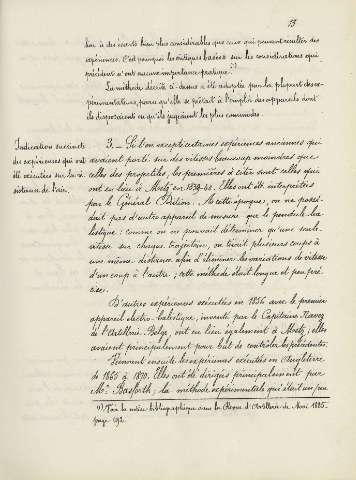 13
lieu à des écarts bien plus considérables que ceux qui peuvent résulter des
expériences. C'est pourquoi les critiques basées sur les considérations qui
précèdent n'ont aucune importance pratique.
La méthode décrite ci-dessus a été adoptée par la plupart des ex-
périmentateurs, parce qu'elle se prêtait à l'emploi des appareils dont
ils disposaient ou qu'ils jugeaient les plus commodes.
Indication succincte
des expériences qui ont
été exécutées sur la ré-
sistance de l'air.
3. — Si l'on excepte certaines expériences anciennes qui
avaient porté sur des vitesses beaucoup moindres que
celles des projectiles, les premières à citer sont celles qui
ont eu lieu à Metz en 1839-40. Elles ont été interprétées
par le Général Didion. À cette époque, on ne possé-
dait pas d'autre appareil de mesure que le pendule ba-
listique: comme on ne pouvait déterminer qu'une seule
vitesse sur chaque trajectoire, on tirait plusieurs coups à
une même distance afin d'éliminer les variations de vitesse
d'un coup à l'autre; cette méthode était longue et peu pré-
cise.
D'autres expériences exécutées en 1856 avec le premier
appareil électro-balistique, inventé par le Capitaine Navez
de l'Artillerie Belge ont eu lieu également à Metz; elles
avaient principalement pour but de contrôler les précédentes.
Viennent ensuite les expériences exécutées en Angleterre
de 1865 à 1870. Elles ont été dirigées principalement par
Mr. Basforth; la méthode expérimentale qui était un peu
(1) Voir la notice bibliographique dans la Revue d'Artillerie de Mai 1885.
page 192.